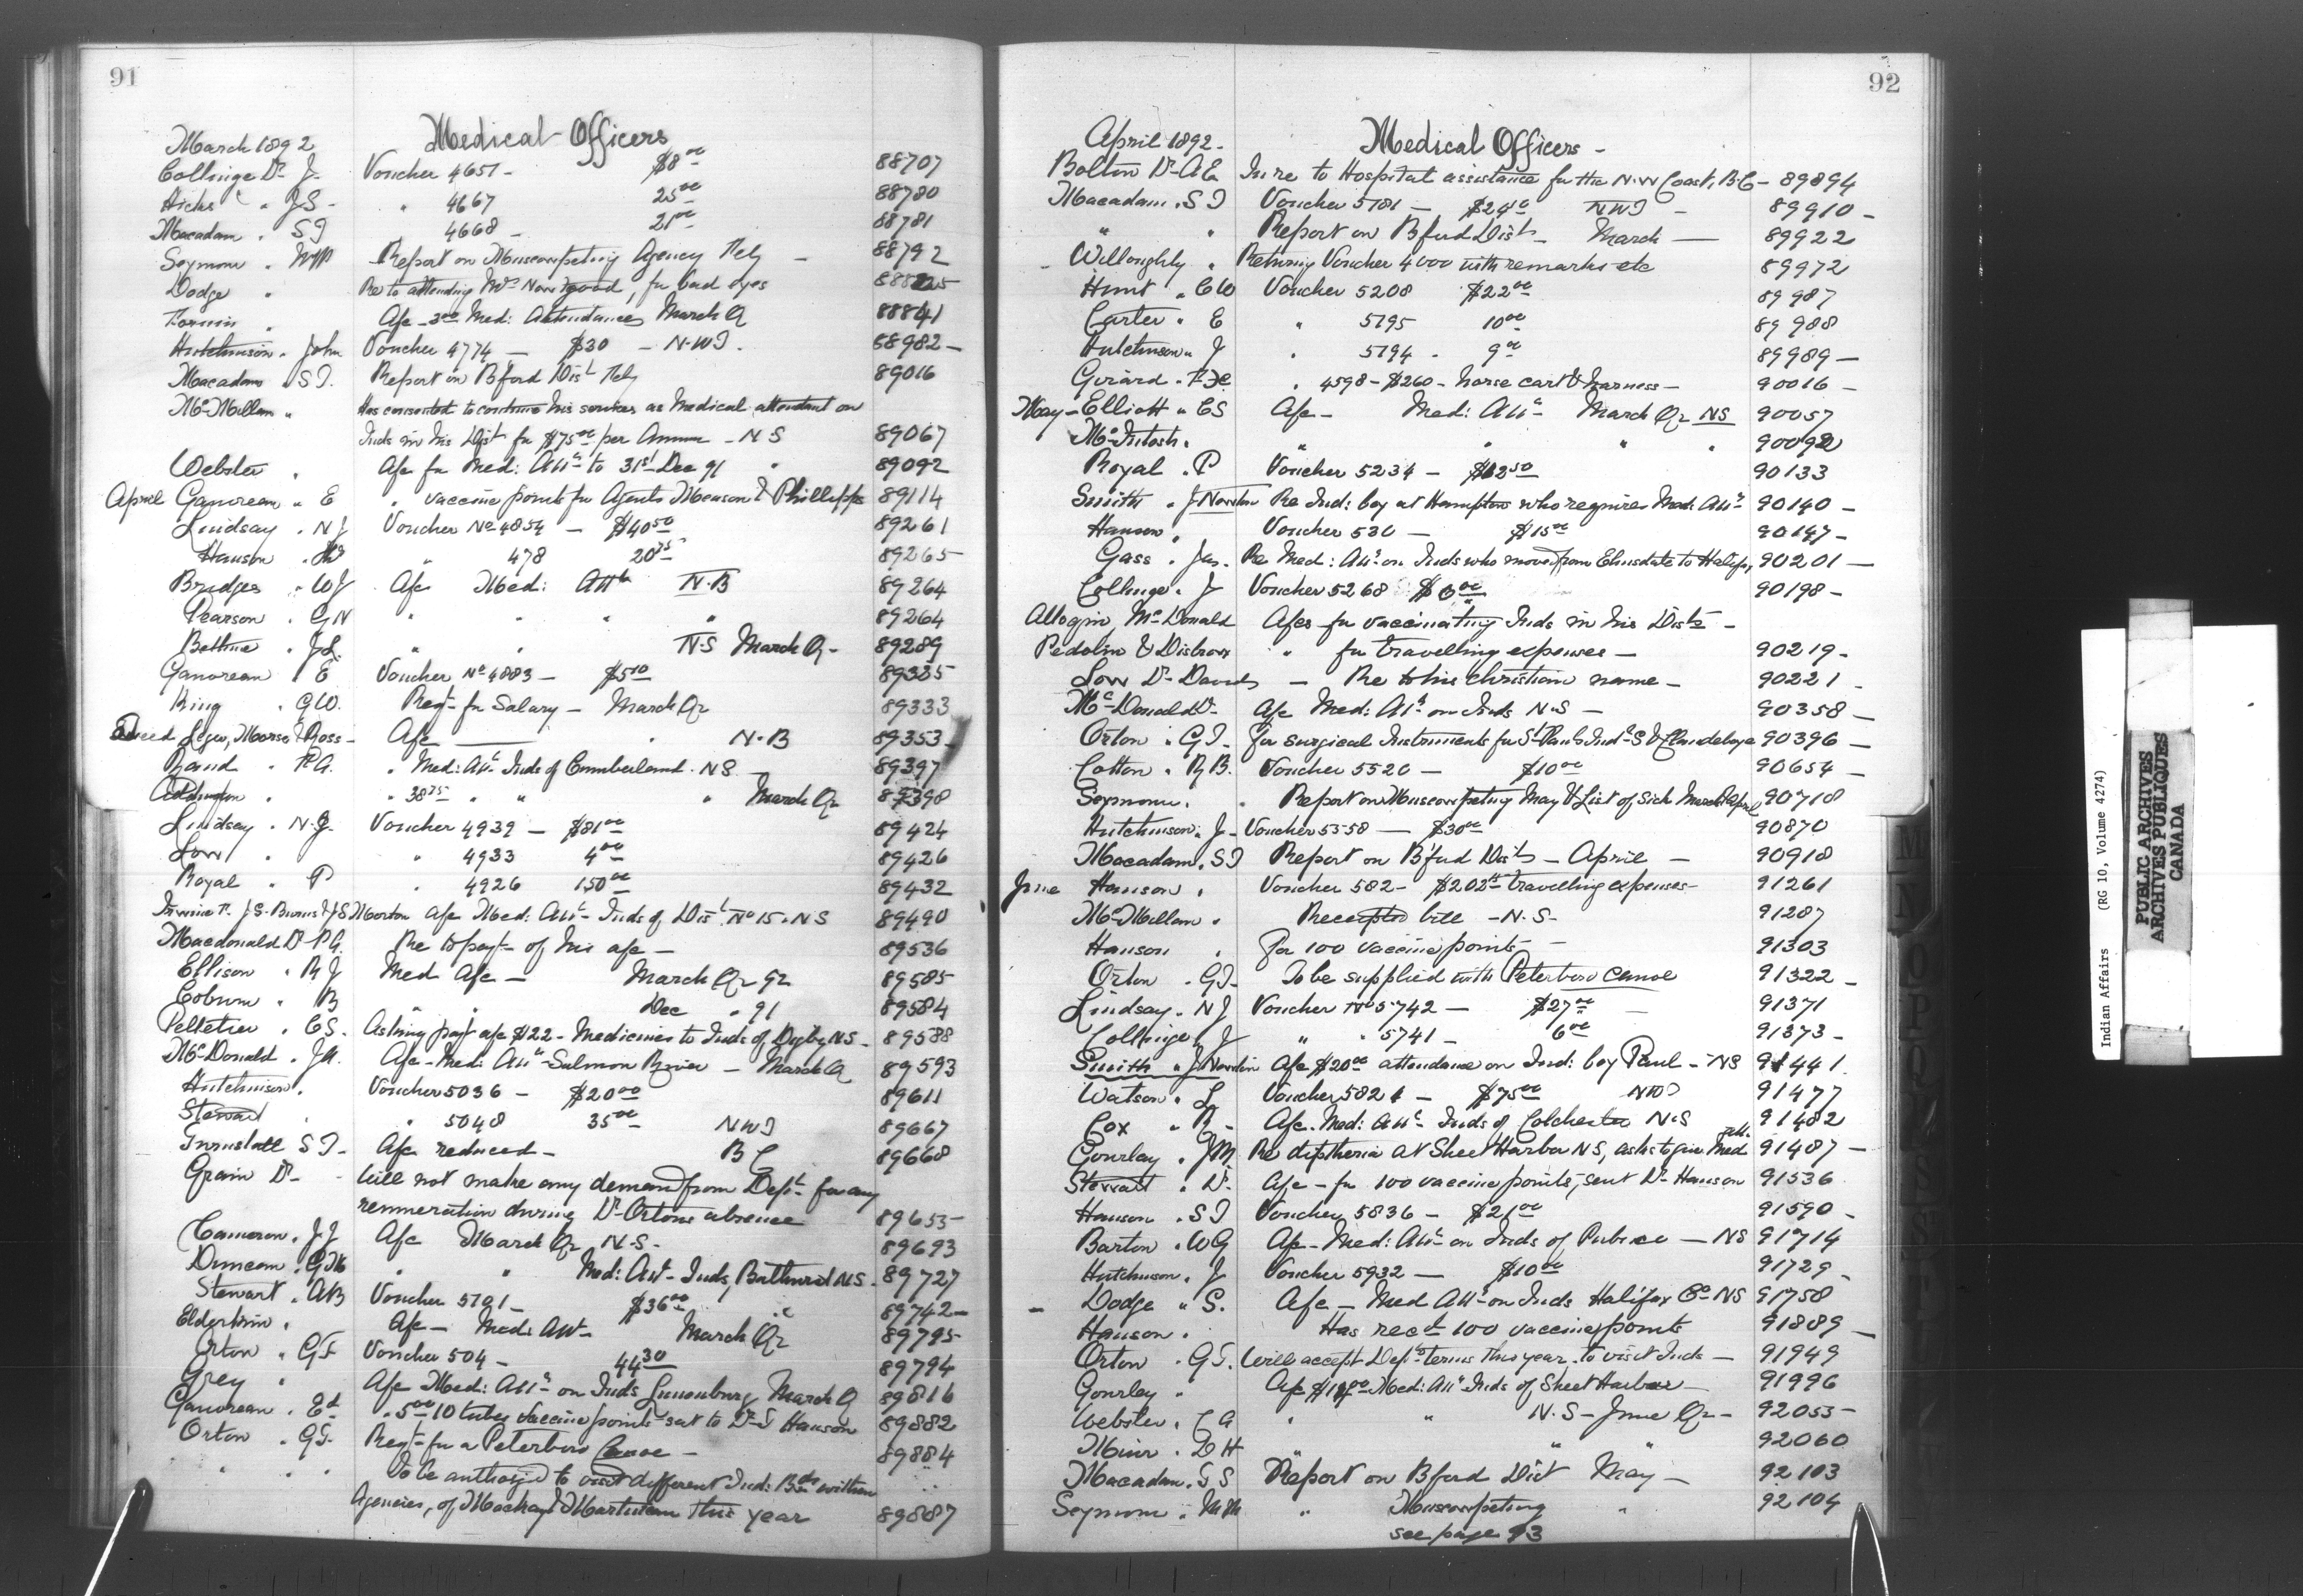 91
Medical Officers
March 1892
Collinge Dr J. Voucher 4651 - $8 00 88707
Hicks " JS - " 4667 25 00 88780
Macadam " SJ 4668 - 21 00 88781
Seymour " MM Report on Muscowpetung Agency Feby - 88792
Dodge " Re to attending Mrs , for bad eyes
" A/c - 3 00 Med: Attendance March Q 88841
Hutchinson " John Voucher 4774 - $30 - N.W.T. 88982 -
Macadam " S.J. Report on B'ford Dist Feby 89016
McMillan " Has consented to continue his services as Medical attendant on
Inds in his Dist for $75 00 per Annum - N S 89067
Webster " A/c for Med: Attce to 31st Dec 91 " 89092
April Gauvreau " E " vaccine points for Agents & Phillipps 89114
Lindsay " N J Voucher No 4854 - $40 50 89261
Hanson " " 478 20 75 89265
Bridges " WJ A/c Med: Attce N.B 89264
Pearson " GN " " " " 89264
Bethune " J.L. " " N.S March Qr - 89289
Gauvreau E Voucher No 4883 - $5 10 89325
King " GW. Reqt for Salary - March Qr 89333
Legere, Morse & Ross - A/c " N.B 89353
Rand " F.A. " Med: Attce Inds of Cumberland. N.S - 89397
" " 38 75 " " " March Qr 89398
Lindsay " N.J. Voucher 4939 - $81 00 89424
Low " " 4933 4 00 89426
Royal " P " 4926 150 00 89432
J.G. Burns & J S Morton A/c Med: Attce Inds of Dist No 15. N S 89490
Macdonald Dr P.A. Re to payt of his a/c - 89536
Ellison " R J Med A/c - March Qr 92 89585
Coburn " B " " Dec " 91 89584
Pelletier " C S. Asking payt a/c $22 - Medicines to Inds of Digby NS - 89588
McDonald " A/c - Med: Attce - Salmon River - March Q 89593
Hutchinson " Voucher 5036 - $20 00 89611
Stewart " " 5048 35 00 NWT 89667
Tunstall S J - A/c reduced - B C 89668
Grain Dr - Will not make any demand from Dept for any
remuneration during Dr Ortons absence 89655
Cameron " J J A/c March Qr N.S - 89693
Duncan " GM " " Med: Att - Inds, Bathurst N.S - 89727
Stewart " AB Voucher 5101 - $36 00 " 89742 -
Elderkin " A/c - Med: Att - March Qr 89795
Orton " G.T. Voucher 504 - 44 30 89794
Grey " A/c Med: Attce on Inds Lunenburg March Q 89816
Gauvreau " Ed " 5 00 10 tubes vaccine points sent to Dr S Hanson 89882
Orton " G.T. Reqt for a Peterboro Canoe - 89884
" " " To be authorized to visit different Ind: Bds within
Agencies, of Mackay & Martineau this year 89887
92
Medical Officers -
April 1892 -
Bolton Dr A E In re to Hospital assistance for the N.W Coast, B.C - 89894
Macadam " S J Voucher 5181 - NWT - 89910 -
" " Report on B'ford Dist - March - 89922
Willoughby " Returning Voucher 4000 with remarks etc 89972
Hunt " CW Voucher 5208 $22 00 89987
Carter " E " 5195 10 00 89988
Hutchinson " J " 5194 - 9 00 89989 -
Girard " F.X. " 4598 - $260 - horse cart & harness - 90016 -
May - Elliott " C S A/c - Med: Attce March Qr NS 90057
McIntosh " " " " " 90092
Royal " P Voucher 5234 - $12 50 90133
Smith " J Newton Re Ind: boy at Hampton who requires Med: Attce 90140 -
Hanson " Voucher 530 - $15 00 90147 -
Gass " Jas. Re Med: Attce on Inds who moved from Elmsdale to Halifax, 90201 -
Collinge " J Voucher 5268 $6 00 90198 -
McDonald A/cs for vaccinating Inds in his Dists -
Pedolin & Disbrow " for travelling expenses - 90219 -
Low Dr - Re to his Christian name - 90221 -
McDonald Dr A/c Med: Attce on Inds N.S - 90358 -
Orton " G.T. For surgical Instruments for St Pauls Indl S & Clandeboye 90396 -
Cotton " R B. Voucher 5520 - $10 00 90654 -
Seymour " " Report on Muscowpetung May & List of Sick March & April 90718
Hutchinson " J - Voucher 5558 - $30 00 90870
Macadam " S J Report on B'ford Dists - April - 90918
June Hanson " Voucher 582 - $202 travelling expenses - 91261
McMillan " Receipted bill - N.S - 91287
Hanson " For 100 vaccine points - 91303
Orton " G.T. To be supplied with Peterboro canoe 91322 -
Lindsay " N J Voucher No 5742 - $27 00 - 91371
Collinge " J " " 5741 - 6 00 91373 -
Smith " J Newton A/c $20 00 attendance on Ind: boy Paul - NS 91441
Watson " L Voucher 5821 - $75 00 NWT 91477
Cox " R - A/c - Med: Attce Inds of Colchester N.S 91482
Gourley " JM Re diptheria at Sheet Harbor NS, asks to give Med. Att. 91487 -
Stewart " Dr. A/c - for 100 vaccine points, sent Dr Hanson 91536
Hanson " S J Voucher 5836 - $21 00 91590 -
Barton " WG A/c - Med: Attce on Inds of Pubnico - NS 91714
Hutchinson " J Voucher 5932 - $10 00 91729 -
- Dodge " S. A/c - Med Attce on Inds Halifax Co NS 91758
Hanson " Has recd 100 vaccine points 91889 -
Orton " G.T. Will accept Depts terms this year, to visit Inds - 91949
Gourley " A/c Med: Attce Inds of Sheet Harbor - 91996
Webster " C A " " N.S - June Qr - 92055 -
Muir " D H " " " 92060
Macadam " S J Report on B'ford Dist May - 92103
Seymour " M M " Muscowpetung " 92104
see page 93
Indian Affairs (RG 10, Volume 4274)
PUBLIC ARCHIVES
ARCHIVES PUBLIQUES
CANADA